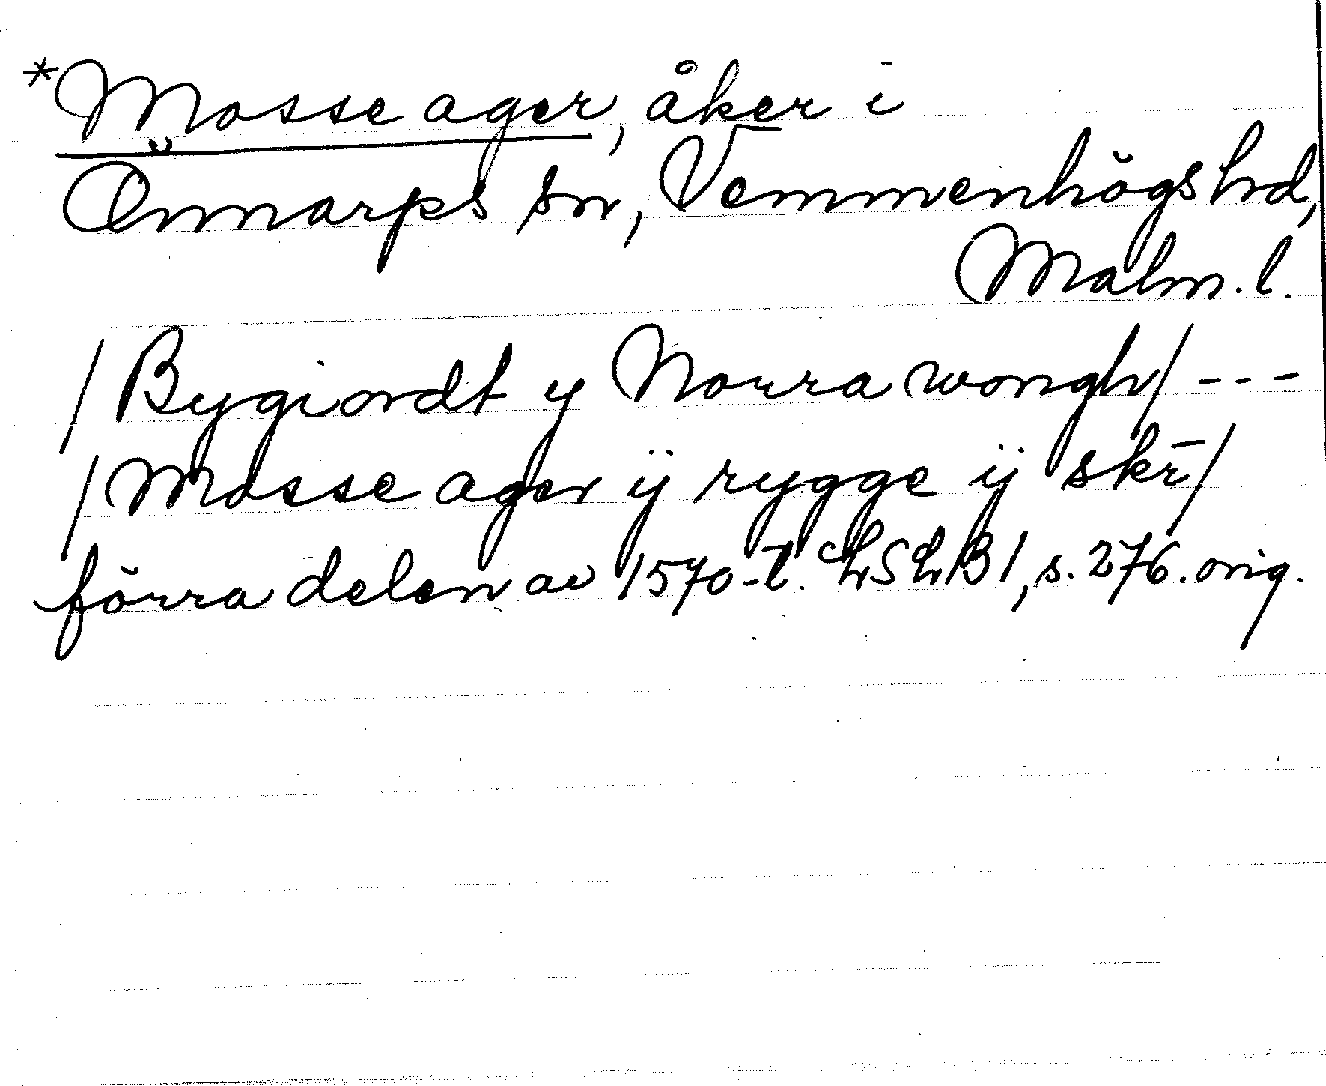 *Mosse ager, åker i
Önnarps sn, Vemmenhögs hrd,
Malm. l.
/Bygiordt y Norra wongh/ ---
/Mosse ager ij rygge ij skr̄/
förra delen av 1570-t. LSLB1, s. 276. orig.